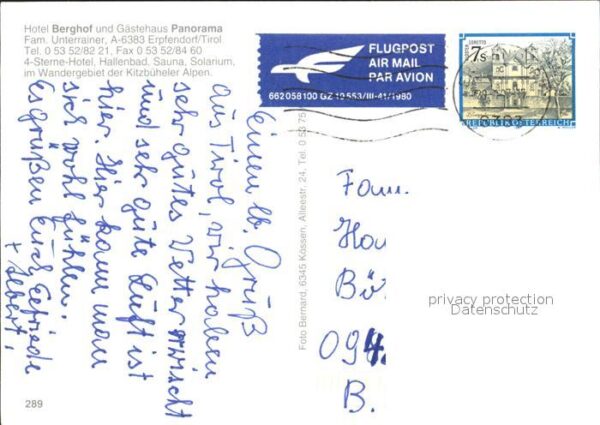 Hotel Berghof und Gästehaus Panorama
Fam. Unterrainer, A-6383 Erpfendorf/Tirol
Tel. 0 53 52/82 21, Fax 0 53 52/84 60
4-Sterne-Hotel, Hallenbad, Sauna, Solarium,
im Wandergebiet der Kitzbüheler Alpen.
FLUGPOST
AIR MAIL
PAR AVION
662 058 100 GZ 10 553/III-41/1980
LORETTO
7 S
REPUBLIK ÖSTERREICH
Einen lb. Gruß
aus Tirol, wir haben
sehr gutes Wetter
und sehr gute Luft ist
hier. Hier kann man
sich wohl fühlen.
Es grüßen Euch
+ Albert,
Foto Bernard, 6345 Kössen, Alleestr. 24, Tel. 0 53 75
Fam.
Hou
Bü
094.
B.
privacy protection
Datenschutz
289